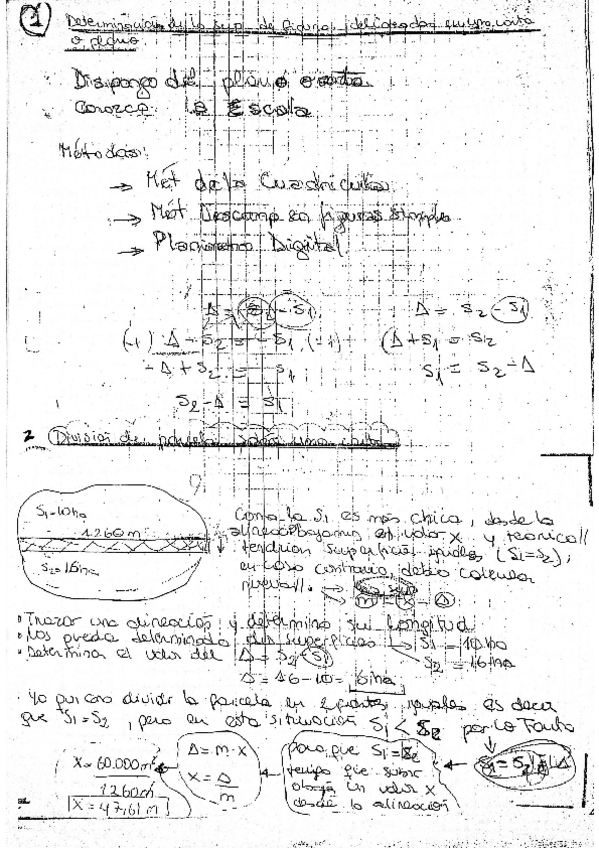 1 Determinación de la sup. de figuras delineadas sobre carta
o plano.
Dispongo del plano o carta
conozco la Escala
Métodos:
→ Mét de la Cuadrícula
→ Mét Descomp en figuras simples
→ Planímetro Digital
Δ = S2 - S1
Δ = S2 - S1
(-1) Δ - S2 = - S1 (-1)
Δ + S1 = S2
- Δ + S2 = S1
S1 = S2 - Δ
S2 - Δ = S1
2 División de parcela sobre una carta
S1 = 10 ha
1260 m
S2 = 16 ha
Como la S1 es más chica, desde la
alineación bajamos el valor x y teórica//
tendrían superficies iguales (S1 = S2),
en caso contrario, debo calcular
nueva//.
m = x - Δ
• Trazar una alineación y determino su longitud
• los puedo determinado dos superficies → S1 = 10 ha
S2 = 16 ha
• Determina el valor del Δ = S2 - S1
Δ = 16 - 10 = 6 ha
• Yo dividir la parcela en iguales, es decir
que S1 = S2, pero en esta situación S1 < S2 por lo Tanto
S1 = S2 Δ
para que S1 = S2
tengo que
un valor x
desde la alineación
Δ = m . x
x = Δ
m
x = 60.000 m²
1260 m
x = 47,61 m